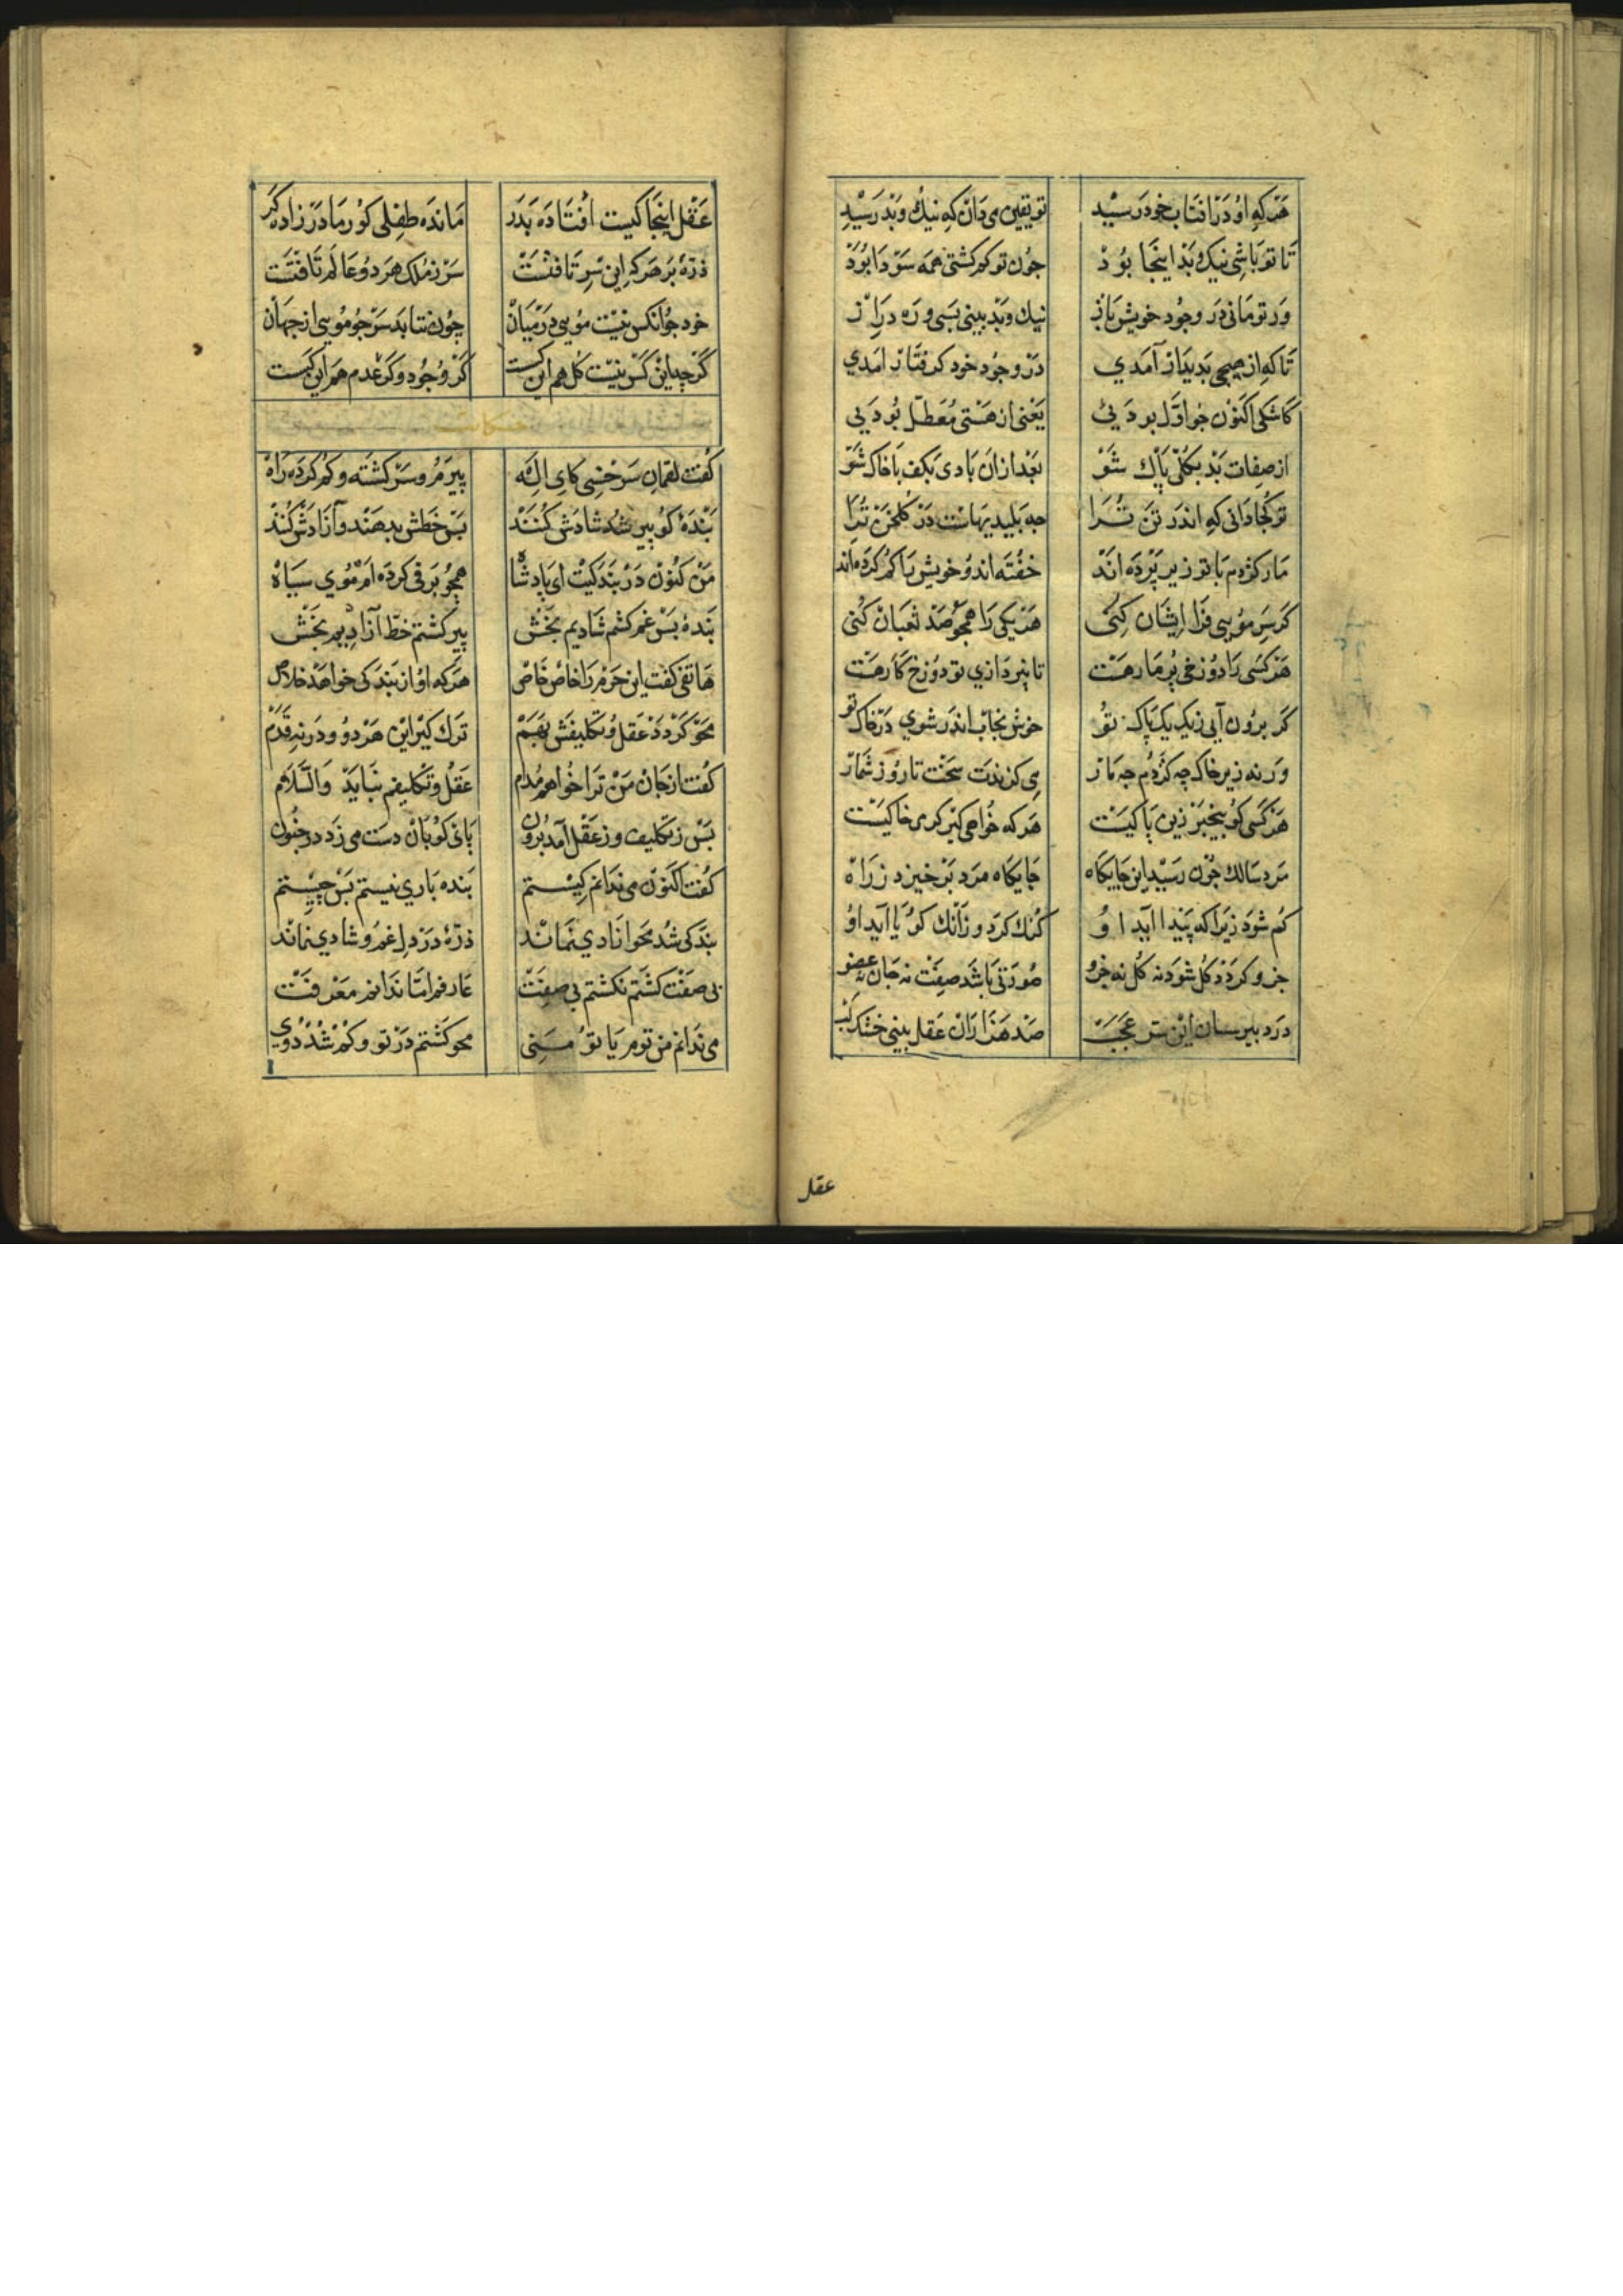 هَرکه اوُ دَر آفتاب خود رَسیْد تو یقین می‌دان که نیك و بَد رَسیْد
تا تو بَاشی نیک و بَد اینجا بوُدْ چوُن تو کم کشتی همَه سَوْدا بوُدْ
وَر تو مَانی دَر وجوُد خویش باز نیك و بَد بینی بَسی و رَه دراز
تا که از هیچی بدیدار آمَدی دَر وجوُد خود کرفتار امَدی
کاشکی اکنوُن چو اوّل بودیئ یَعنی از هَستی مُعَطّل بوُدیی
از صفات بَد بکلّی پاْك شوْ بَعْد ازان بَادی بکف با خاک شوْ
تو کجا دَانی که اندَر تنْ ترا چه پلیدیهاست دَر کلخن ترا
مار کژدم با تو زیر پَرْدَه اند خفته اند و خویش را کم کرده‌اند
کر سَر موُیی فرا ایشان کنی هَر یکی را همچو صَد ثعبان کنی
هَر کسی را دوُزخی پُر مار هَست تا بپردازی تو دوُزخ کار هَست
کر بروُن آیی ز یک یک پاک تو خوش بخاب اندَر شوی دَر خاک تو
وَرنه زیر خاک چه کژدم چه مار می کزندت سَخت تا روُز شمار
هَر کسی کوُ بیخبَر زین پاکیَست هَر که خوُاهی کیر کرمی خاکیَست
مَرد سَالك چوُن رَسید این جایکاه جایکاه مرد بَر خیزد ز راهْ
کم شوَد زیرا که پَیْدا آید او کنك کردد زانك کوُیا آید او
جزو کردد کل شود نه کل نه جزو صوُرتی باشد صفت نه جان نه عضو
دَرد بیرسان این سر عَجَبْ صَد هَزاران عَقل بینی خشک لبْ
عقل
عَقْل اینجا کیست افتاده بدَر مانده طفلی کوُر مادَر زاد کر
ذرّهٔ بَر هَر که این سرّ تافتست سَر ز ملک هر دوُ عالَم تافتَست
خود چوُ انکس نیست موُیی دَر میَانْ چوُن نتابد سَر چو موُیی از جهان
کر چه این کس نیست کل هم این کست کر وجوُد و کر عدم هم این کست
حکایت
کفت لقمان سَرخسی کای اِلَه پیرم و سَر کشته و کم کرده راه
بَندهٔ کوُ پیر شد شادش کنند بَس خطش بدهند و آزادش کُنند
مَن کنون در بندکیت ای پادشاه همچو برفی کرده ام موُی سیاه
بنده بس غم کشم شادیم بخش پیر کشتم خطّ آزادیم بخش
هاتفی کفت این حرم را خاص خاص هرکه او از بندکی خواهد خلاص
محو کردد عقل و تکلیفش بهم ترك کیر این هر دو و در نه قدم
کفت از جان من ترا خواهم مُدام عقل و تکلیفم نباید والسّلام
بَس ز تکلیف وز عقل آمد برون پای کوبان دست می زد در جنون
کفت اکنوُن می ندانم کیستم بنده باری نیستم بس چیستم
بندکی شد محو آزادی نماند ذرّهٔ در دل غم و شادی نماند
بی صفت کشتم نکشتم بی صفت عارفم امّا ندانم معرفت
می ندانم من توم یا تو مَنی محو کشتم در تو و کم شد دوی